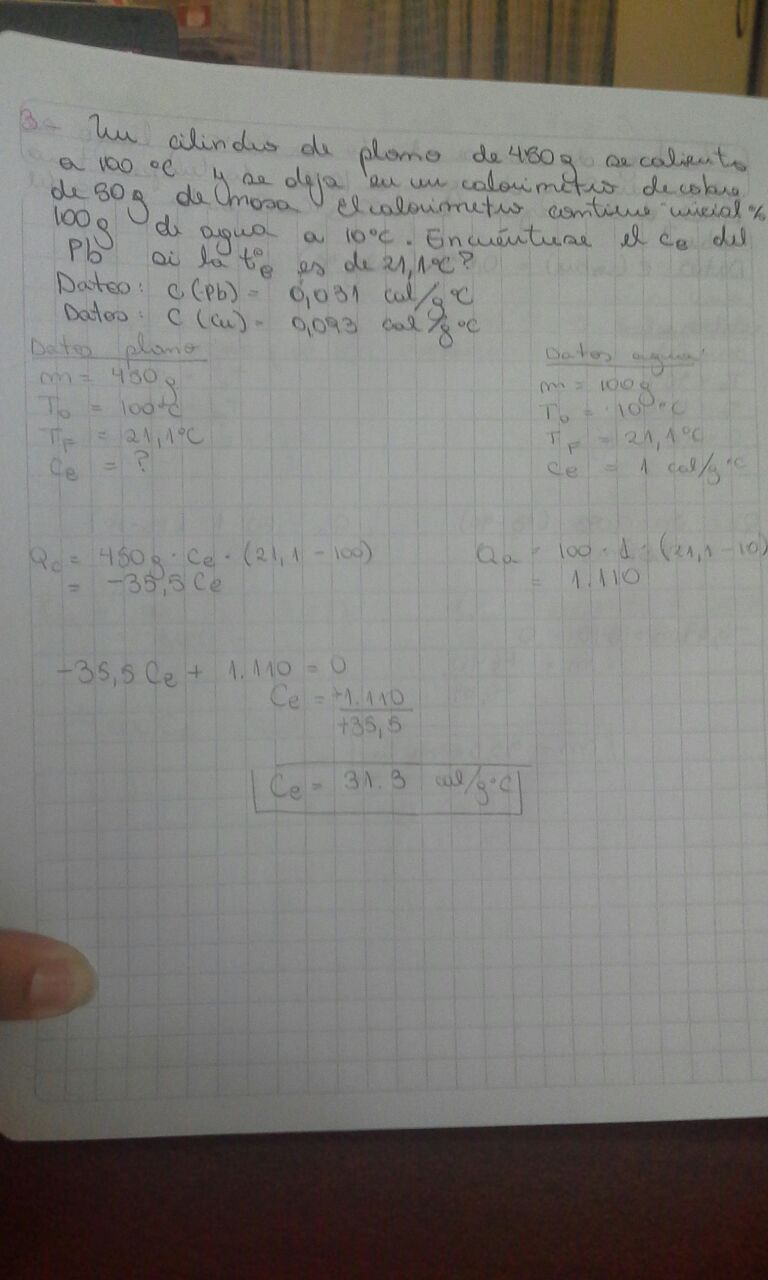 3.- Un cilindro de plomo de 450g se calienta
a 100 °C y se deja en un calorimetro de cobre
de 50g de masa el calorimetro contiene inicial %
100g de agua a 10°C. Encuéntrese el Ce del
Pb si la t°e es de 21,1°C?
Datos: C(Pb) = 0,031 cal/g°C
Datos: C(Cu) = 0,093 cal/g°C
Datos plomo Datos agua
m = 450g m = 100g
To = 100°C To = 10°C
TF = 21,1°C TF = 21,1°C
Ce = ? Ce = 1 cal/g°C
Qc = 450g · Ce · (21,1 - 100) Qa = 100 · 1 · (21,1 - 10)
= -35,5 Ce = 1.110
-35,5 Ce + 1.110 = 0
Ce = +1.110
+35,5
Ce = 31.3 cal/g°C